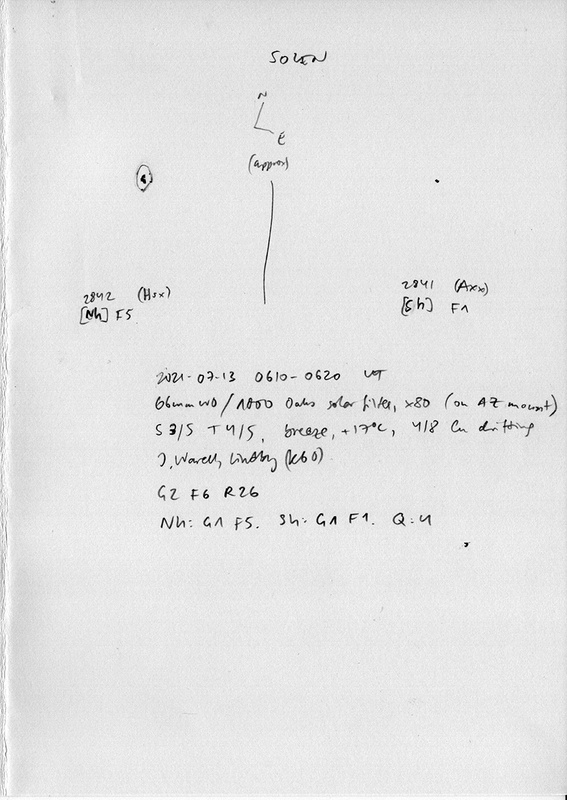 SOLEN
N
E
(approx)
2842 (Hsx)
[Nh] F5
2841 (Axx)
[Sh] F1
2021-07-13 0610-0620 UT
66mm WO / 1000 Oaks solar filter, x80 (on AZ mount)
S 3/5 T 4/5, breeze, +17°C, 4/8 Cu drifting
J. Warell, Lindby (K60)
G2 F6 R26
Nh: G1 F5. Sh: G1 F1. Q: 4